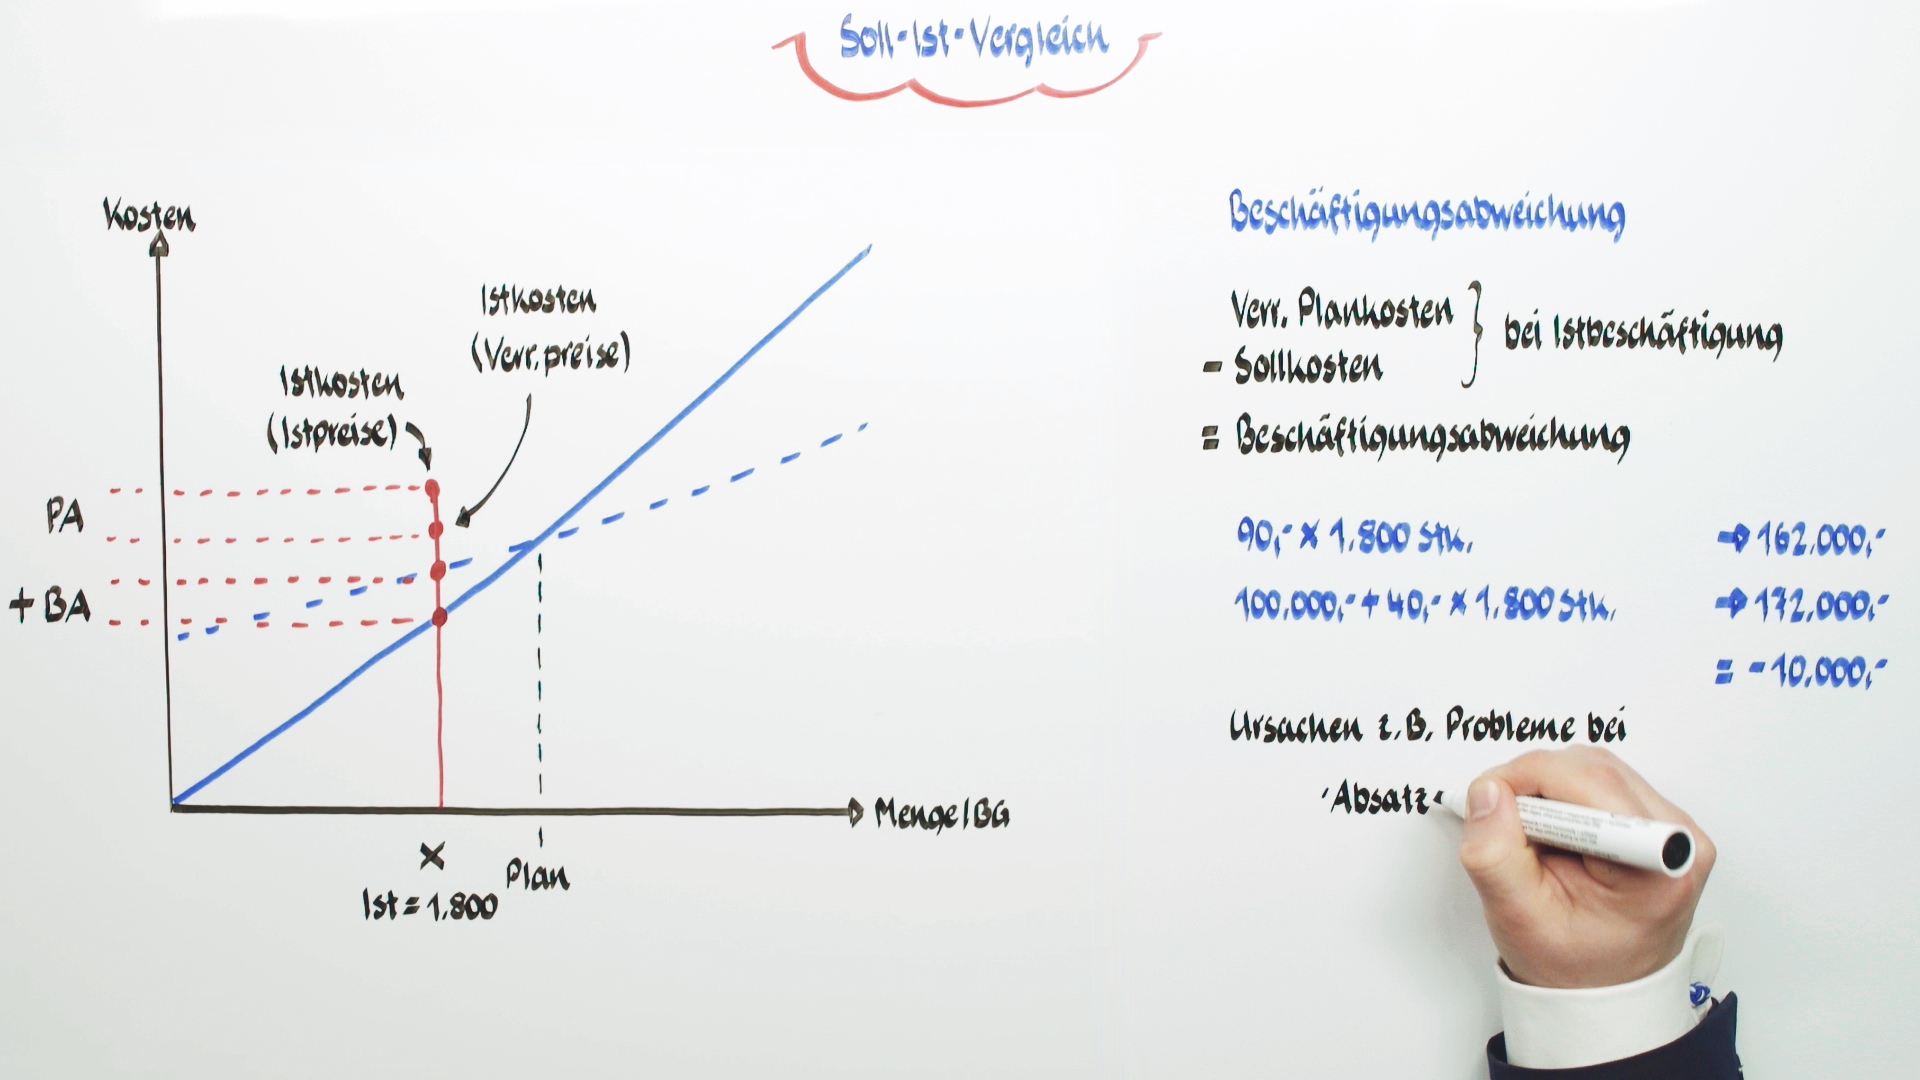 Soll-Ist-Vergleich
Kosten
Istkosten
(Verr.preise)
Istkosten
(Istpreise)
PA
+ BA
Menge/BG
x
Plan
Ist = 1.800
Beschäftigungsabweichung
Verr. Plankosten
- Sollkosten
} bei Istbeschäftigung
= Beschäftigungsabweichung
90,- x 1.800 Stk. → 162.000,-
100.000,- + 40,- x 1.800 Stk. → 172.000,-
= -10.000,-
Ursachen z.B. Probleme bei
· Absatz